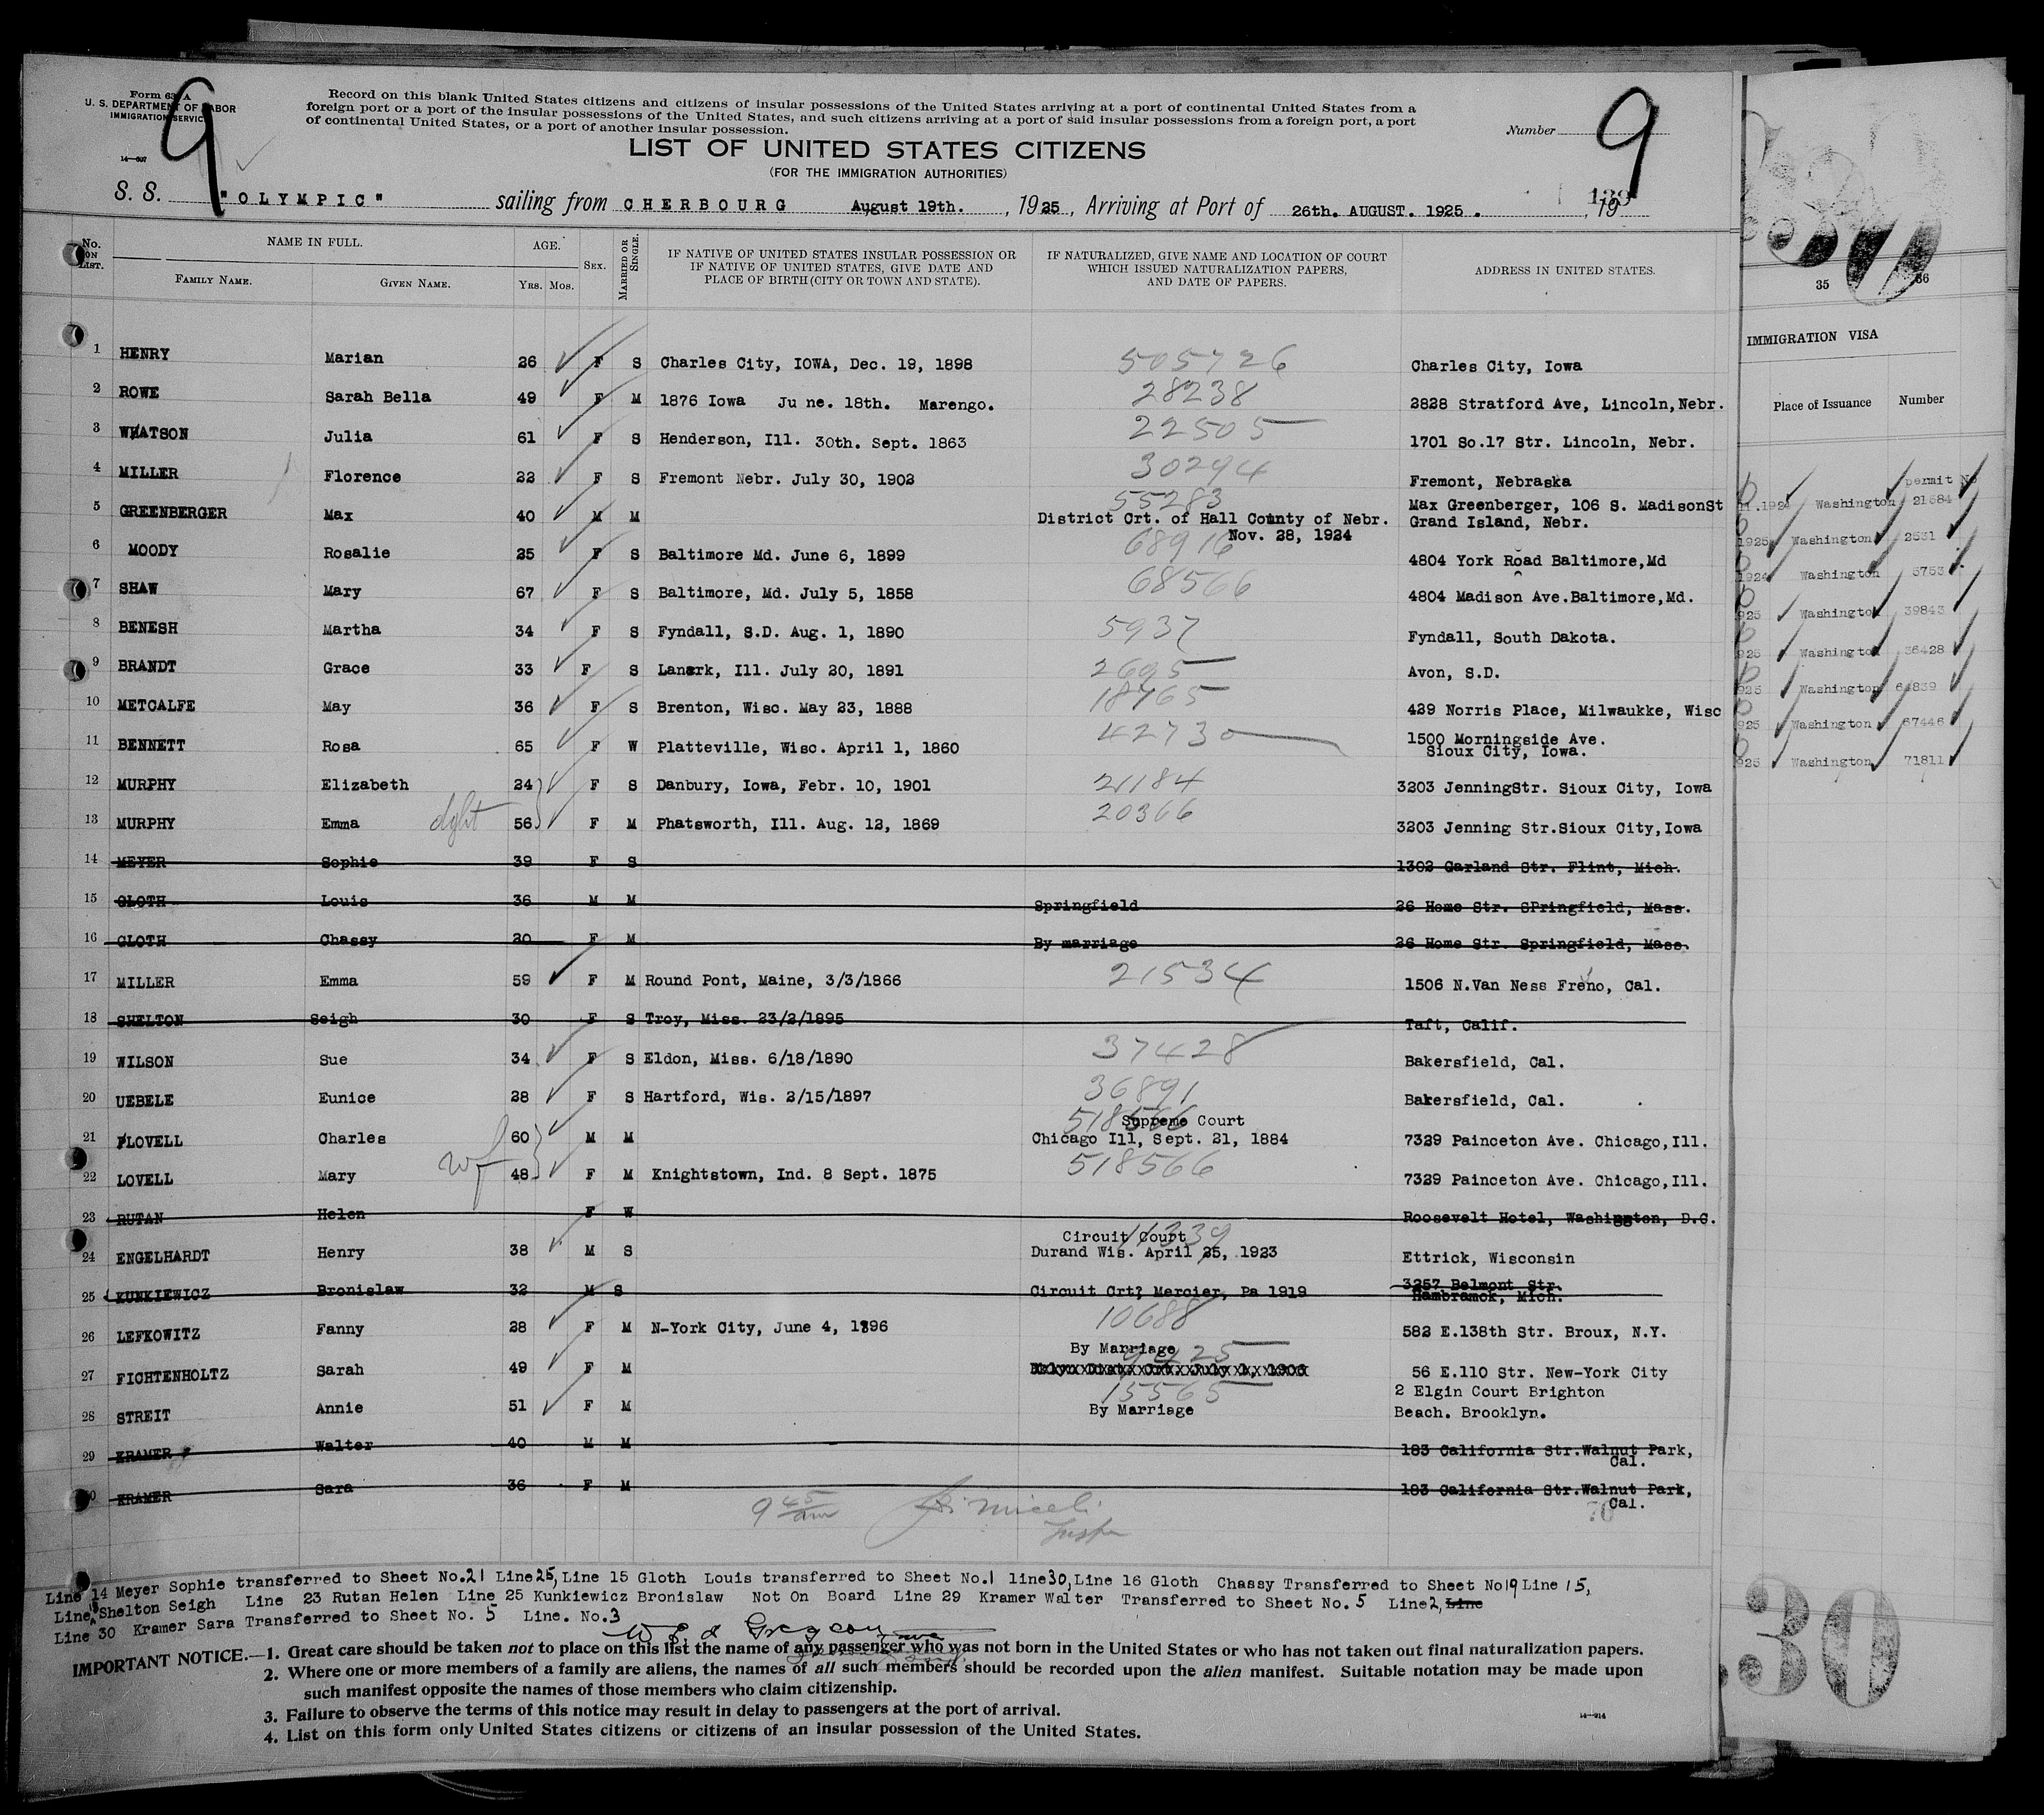 Form 630 A
U. S. DEPARTMENT OF LABOR
IMMIGRATION SERVICE
14—607
9
Record on this blank United States citizens and citizens of insular possessions of the United States arriving at a port of continental United States from a
foreign port or a port of the insular possessions of the United States, and such citizens arriving at a port of said insular possessions from a foreign port, a port
of continental United States, or a port of another insular possession.
Number 9
LIST OF UNITED STATES CITIZENS
(FOR THE IMMIGRATION AUTHORITIES)
S. S. "OLYMPIC" sailing from CHERBOURG August 19th. , 1925, Arriving at Port of 26th. AUGUST. 1925. , 19
139
No. ON LIST. NAME IN FULL. FAMILY NAME. GIVEN NAME. AGE. YRS. MOS. SEX. MARRIED OR SINGLE. IF NATIVE OF UNITED STATES INSULAR POSSESSION OR IF NATIVE OF UNITED STATES, GIVE DATE AND PLACE OF BIRTH (CITY OR TOWN AND STATE). IF NATURALIZED, GIVE NAME AND LOCATION OF COURT WHICH ISSUED NATURALIZATION PAPERS, AND DATE OF PAPERS. ADDRESS IN UNITED STATES.
1 HENRY Marian 26 F S Charles City, IOWA, Dec. 19, 1898 505726 Charles City, Iowa
2 ROWE Sarah Bella 49 F M 1876 Iowa Ju ne. 18th. Marengo. 28238 2828 Stratford Ave, Lincoln,Nebr.
3 WHATSON Julia 61 F S Henderson, Ill. 30th. Sept. 1863 22505 1701 So.17 Str. Lincoln, Nebr.
4 MILLER Florence 22 F S Fremont Nebr. July 30, 1902 30294 Fremont, Nebraska
5 GREENBERGER Max 40 M M 55283 District Crt. of Hall County of Nebr. Nov. 28, 1924 Max Greenberger, 106 S. MadisonSt Grand Island, Nebr.
6 MOODY Rosalie 25 F S Baltimore Md. June 6, 1899 68916 4804 York Road Baltimore,Md
7 SHAW Mary 67 F S Baltimore, Md. July 5, 1858 68566 4804 Madison Ave.Baltimore,Md.
8 BENESH Martha 34 F S Fyndall, S.D. Aug. 1, 1890 5937 Fyndall, South Dakota.
9 BRANDT Grace 33 F S Lanark, Ill. July 20, 1891 2695 Avon, S.D.
10 METCALFE May 36 F S Brenton, Wisc. May 23, 1888 18765 429 Norris Place, Milwaukke, Wisc
11 BENNETT Rosa 65 F W Platteville, Wisc. April 1, 1860 42730 1500 Morningside Ave. Sioux City, Iowa.
12 MURPHY Elizabeth 24 F S Danbury, Iowa, Febr. 10, 1901 21184 3203 JenningStr. Sioux City, Iowa
13 MURPHY Emma dght 56 F M Phatsworth, Ill. Aug. 12, 1869 20366 3203 Jenning Str.Sioux City,Iowa
14 MEYER Sophie 39 F S 1302 Garland Str. Flint, Mich.
15 GLOTH Louis 36 M M Springfield 26 Home Str. SPringfield, Mass.
16 GLOTH Chassy 30 F M By marriage 26 Home Str. Springfield, Mass.
17 MILLER Emma 59 F M Round Pont, Maine, 3/3/1866 21534 1506 N.Van Ness Freno, Cal.
18 SHELTON Seigh 30 F S Troy, Miss. 23/2/1895 Taft, Calif.
19 WILSON Sue 34 F S Eldon, Miss. 6/18/1890 37428 Bakersfield, Cal.
20 UEBELE Eunice 28 F S Hartford, Wis. 2/15/1897 36891 Bakersfield, Cal.
21 LOVELL Charles 60 M M 518566 Supreme Court Chicago Ill, Sept. 21, 1884 7329 Painceton Ave. Chicago,Ill.
22 LOVELL Mary wf 48 F M Knightstown, Ind. 8 Sept. 1875 518566 7329 Painceton Ave. Chicago,Ill.
23 RUTAN Helen F W Roosevelt Hotel, Washington, D.C.
24 ENGELHARDT Henry 38 M S Circuit Court 11339 Durand Wis. April 25, 1923 Ettrick, Wisconsin
25 KUNKIEWICZ Bronislaw 32 M S Circuit Crt? Mercier, Pa 1919 3257 Belmont Str. Hambramck, Mich.
26 LEFKOWITZ Fanny 28 F M N-York City, June 4, 1896 10688 582 E.138th Str. Broux, N.Y.
27 FICHTENHOLTZ Sarah 49 F M By Marriage 56 E.110 Str. New-York City
28 STREIT Annie 51 F M 15565 By Marriage 2 Elgin Court Brighton Beach. Brooklyn.
29 KRAMER Walter 40 M M 183 California Str.Walnut Park, Cal.
30 KRAMER Sara 36 F M 183 California Str.Walnut Park, Cal.
9 45 am Miceli Inspr
70
Line 14 Meyer Sophie transferred to Sheet No.21 Line 25, Line 15 Gloth Louis transferred to Sheet No.1 line 30, Line 16 Gloth Chassy Transferred to Sheet No 19 Line 15,
Line 18 Shelton Seigh Line 23 Rutan Helen Line 25 Kunkiewicz Bronislaw Not On Board Line 29 Kramer Walter Transferred to Sheet No. 5 Line 2, Line
Line 30 Kramer Sara Transferred to Sheet No. 5 Line. No.3
IMPORTANT NOTICE.—1. Great care should be taken not to place on this list the name of any passenger who was not born in the United States or who has not taken out final naturalization papers.
2. Where one or more members of a family are aliens, the names of all such members should be recorded upon the alien manifest. Suitable notation may be made upon
such manifest opposite the names of those members who claim citizenship.
3. Failure to observe the terms of this notice may result in delay to passengers at the port of arrival.
4. List on this form only United States citizens or citizens of an insular possession of the United States.
14—914
35 36
IMMIGRATION VISA
Place of Issuance Number
permit No
.1924 Washington 21584
1925 Washington 2531
1924 Washington 5753
925 Washington 39843
925 Washington 36428
925 Washington
925 Washington 67446
925 Washington 71811
30